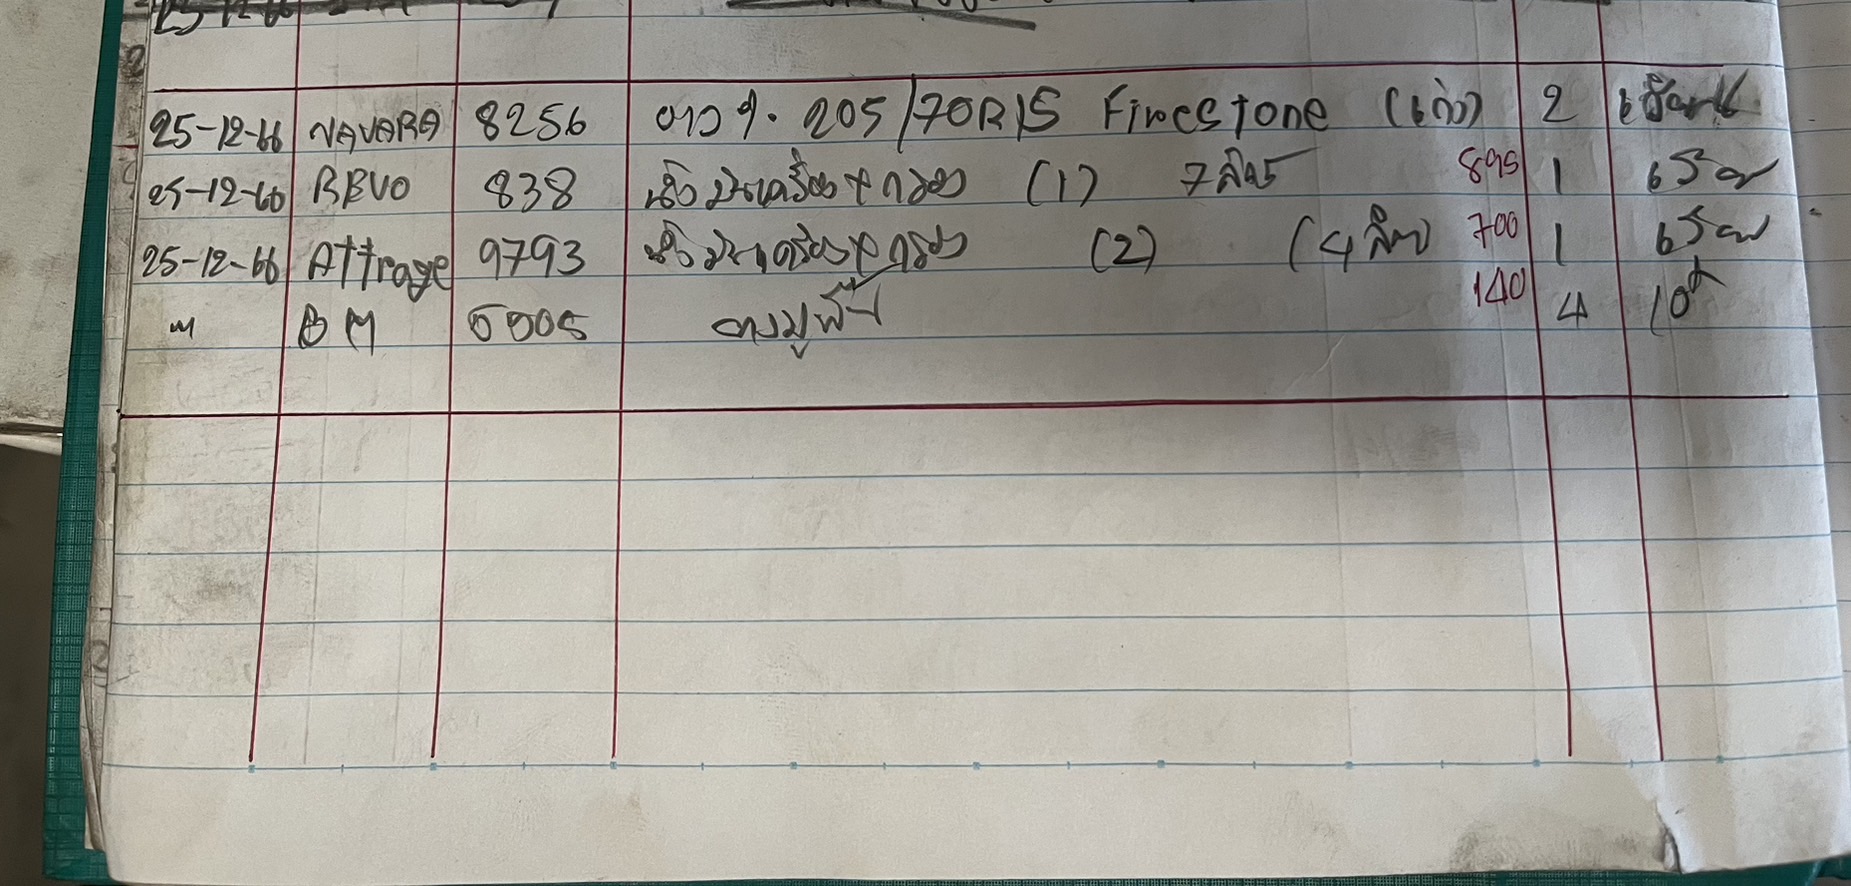 25-12-66 NAVARA 8256 ยาง 205/70R15 Firestone (เก่า) 2
25-12-66 REVO 838 น้ำมันเครื่อง+กรอง (1) 7 ลิตร 895 1
25-12-66 Attrage 9793 น้ำมันเครื่อง+กรอง (2) (4 ลิตร) 700 1
" BM 5505 140 4